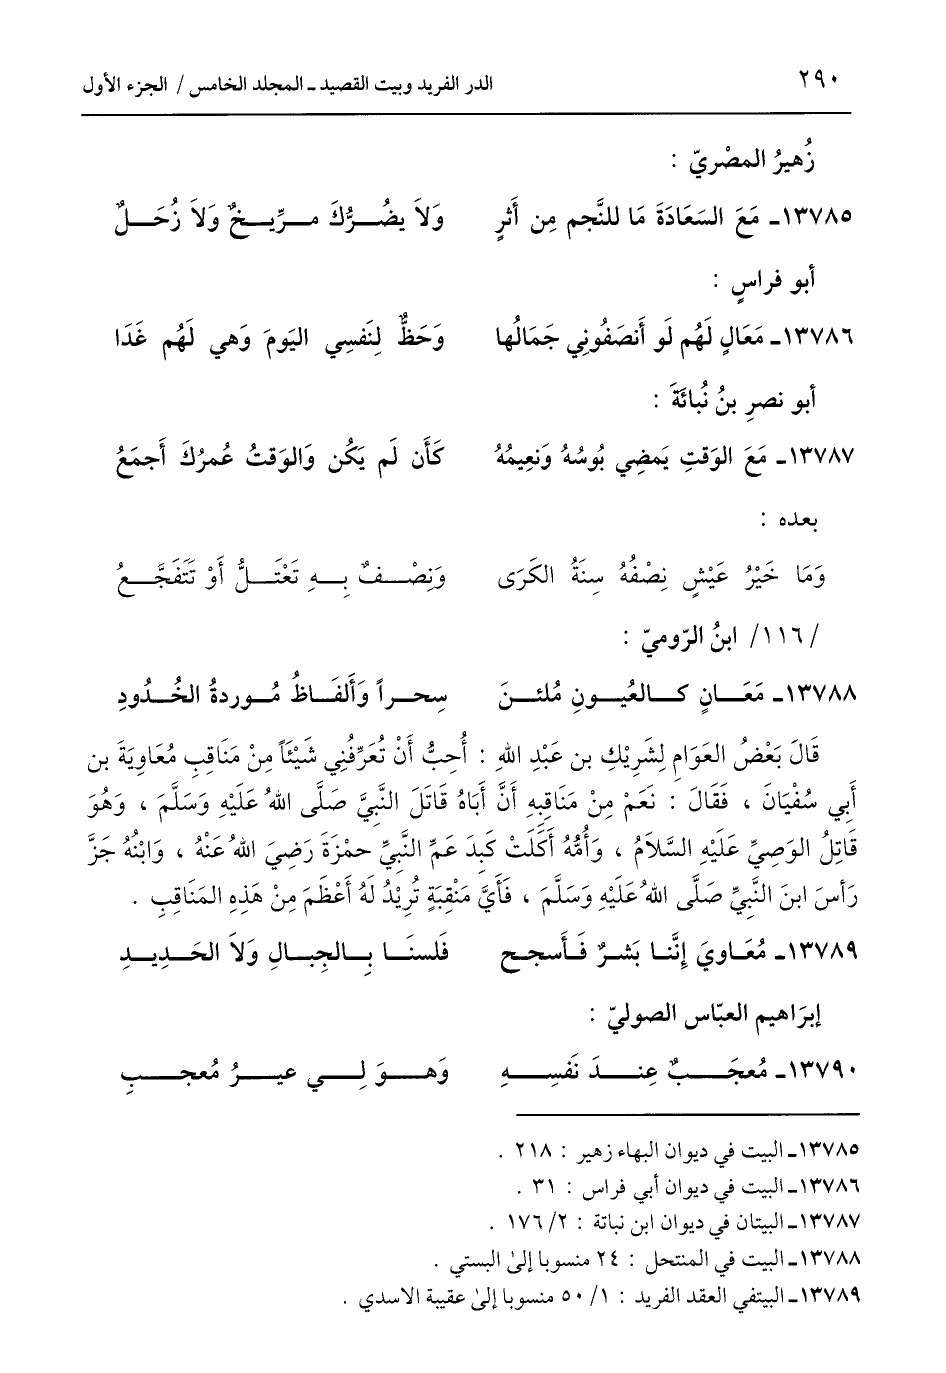 ٢٩٠ الدر الفريد وبيت القصيد ـ المجلد الخامس / الجزء الأول
زُهيرُ المصْريّ :
١٣٧٨٥ـ مَعَ السَعَادَةَ مَا للنَّجم مِن أَثرٍ وَلاَ يضُرُّكَ مرِّيخٌ وَلاَ زُحَلٌ
أبو فراسٍ :
١٣٧٨٦ـ مَعَالٍ لَهُم لَو أَنصَفُونِي جَمَالُها وَحَظٌّ لِنَفسِي اليَومَ وَهي لَهُم غَدَا
أبو نصرِ بنُ نُبائَةَ :
١٣٧٨٧ـ مَعَ الوَقتِ يَمضِي بُوسُهُ وَنَعِيمُهُ كَأَن لَم يَكُن وَالوَقتُ عُمرُكَ أَجمَعُ
بعده :
وَمَا خَيْرُ عَيْشٍ نِصْفُهُ سِنَةُ الكَرَى وَنِصْفٌ بِهِ تَعْتَلُّ أَوْ تَتَفَجَّعُ
/١١٦/ ابنُ الرّوميّ :
١٣٧٨٨ـ مَعَانٍ كالعُيونِ مُلئنَ سِحراً وَألفَاظُ مُوردةُ الخُدُودِ
قَالَ بَعْضُ العَوَامِ لِشَرِيْكِ بن عَبْدِ اللهِ : أُحِبُّ أَنْ تُعَرِّفُنِي شَيْئَاً مِنْ مَنَاقِبِ مُعَاوِيَةَ بن
أَبِي سُفْيَانَ ، فَقَالَ : نَعَمْ مِنْ مَنَاقِبِهِ أَنَّ أَبَاهُ قَاتَلَ النَّبِيَّ صَلَّى اللهُ عَلَيْهِ وَسَلَّمَ ، وَهُوَ
قَاتِلُ الوَصِيِّ عَلَيْهِ السَّلاَمُ ، وَأُمُّهُ أَكَلَتْ كَبِدَ عَمِّ النَّبِيِّ حمْزَةَ رَضِيَ اللهُ عَنْهُ ، وَابْنُهُ جَزَّ
رَأسَ ابنَ النَّبِيِّ صَلَّى اللهُ عَلَيْهِ وَسَلَّمَ ، فَأَيَّ مَنْقِبَةٍ تُرِيْدُ لَهُ أَعْظَمَ مِنْ هَذِهِ المَنَاقِبِ .
١٣٧٨٩ـ مُعَاويَ إنَّنا بَشرٌ فَأَسجح فَلسنَا بِالجِبالِ وَلاَ الحَديدِ
إبرَاهيم العبّاس الصوليّ :
١٣٧٩٠ـ مُعجَبٌ عِندَ نَفسِهِ وَهوَ لِي عيرُ مُعجبِ
١٣٧٨٥ـ البيت في ديوان البهاء زهير : ٢١٨ .
١٣٧٨٦ـ البيت في ديوان أبي فراس : ٣١ .
١٣٧٨٧ـ البيتان في ديوان ابن نباتة : ٢/ ١٧٦ .
١٣٧٨٨ـ البيت في المنتحل : ٢٤ منسوبا إلىٰ البستي .
١٣٧٨٩ـ البيتفي العقد الفريد : ١/ ٥٠ منسوبا إلىٰ عقيبة الاسدي .